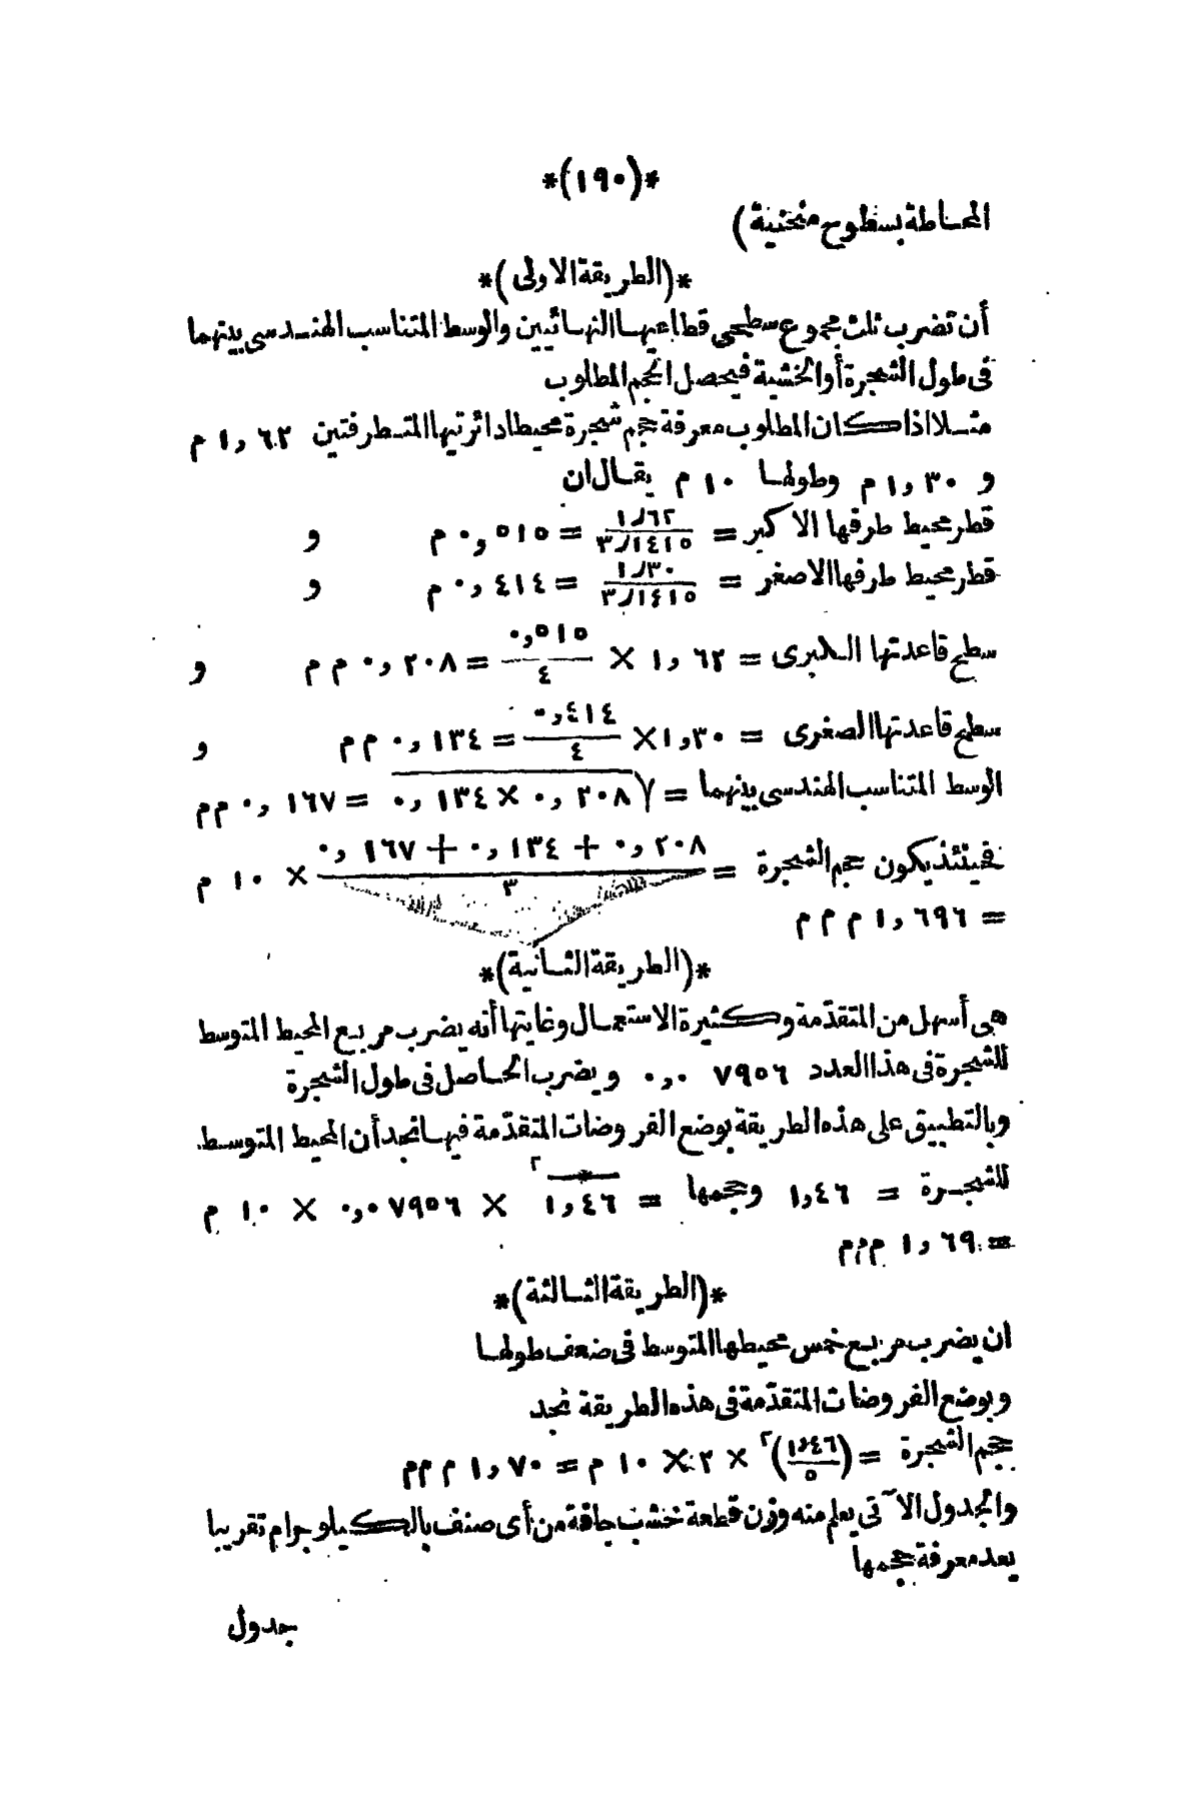 *(١٩٠)*
المحاطة بسطوح منحنية)
*(الطريقة الاولى)*
أن تضرب ثلث مجموع سطحي قطاعيها النهائيين والوسط المتناسب الهندسى بينهما
فى طول الشجرة أو الخشبة فيحصل الحجم المطلوب
مثلا اذا كان المطلوب معرفة حجم شجرة محيطا دائرتيها المتطرفتين ١,٦٢ م
و ١,٣٠ م وطولها ١٠ م يقال ان
قطر محيط طرفها الاكبر = ١,٦٢/٣,١٤١٥ = ٠,٥١٥ م و
قطر محيط طرفها الاصغر = ١,٣٠/٣,١٤١٥ = ٠,٤١٤ م و
سطح قاعدتها الكبرى = ١,٦٢ × ٠,٥١٥/٤ = ٠,٢٠٨ م م و
سطح قاعدتها الصغرى = ١,٣٠ × ٠,٤١٤/٤ = ٠,١٣٤ م م و
الوسط المتناسب الهندسى بينهما = √٠,٢٠٨ × ٠,١٣٤ = ٠,١٦٧ م م
فحينئذ يكون حجم الشجرة = ٠,٢٠٨ + ٠,١٣٤ + ٠,١٦٧/٣ × ١٠ م
= ١,٦٩٦ م م م
*(الطريقة الثانية)*
هى أسهل من المتقدّمة وكثيرة الاستعمال وغايتها أنه يضرب مربع المحيط المتوسط
للشجرة فى هذا العدد ٠,٠٧٩٥٦ ويضرب الحاصل فى طول الشجرة
وبالتطبيق على هذه الطريقة بوضع الفروضات المتقدّمة فيها نجد أن المحيط المتوسط
للشجرة = ١,٤٦ وحجمها = ١,٤٦² × ٠,٠٧٩٥٦ × ١٠ م
= ١,٦٩ م م م
*(الطريقة الثالثة)*
ان يضرب مربع خمس محيطها المتوسط فى ضعف طولها
وبوضع الفروضات المتقدّمة فى هذه الطريقة نجد
حجم الشجرة = (١,٤٦/٥)² × ٢ × ١٠ م = ١,٧٠ م م م
والجدول الآتى يعلم منه وزن قطعة خشب جافة من أى صنف بالكيلوجرام تقريبا
بعد معرفة حجمها
جدول